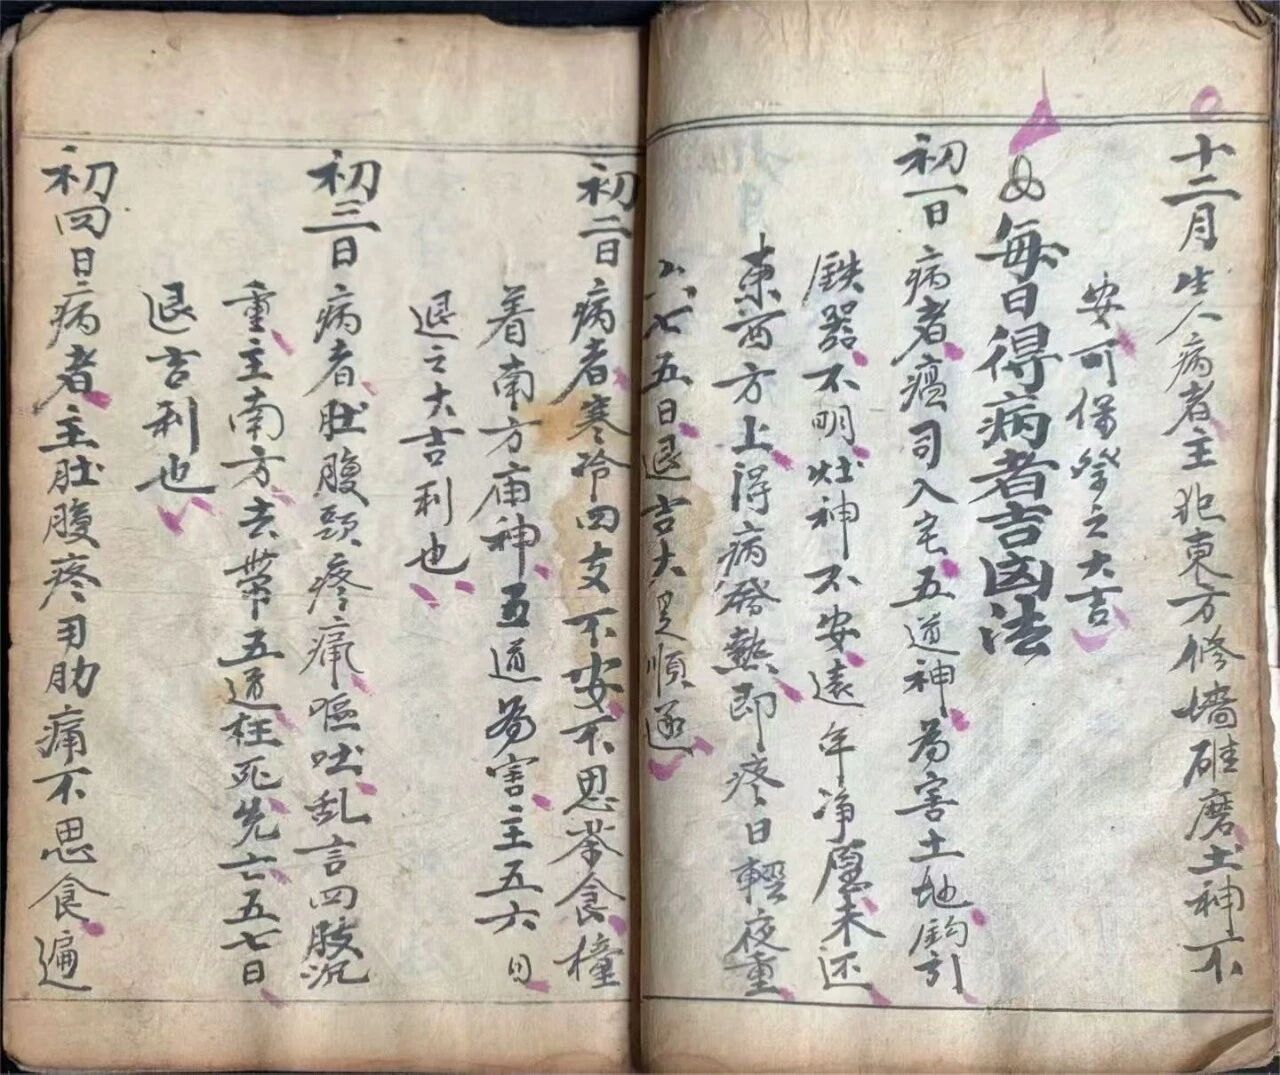 十二月生人病者主犯東方修墻碓磨土神不
安可保祭之大吉
每日得病者吉凶法
初一日病者瘟司入宅五道神為害土地鈎引
鉄器不明灶神不安遠年净愿未还
東西方上得病發熱即疼日輕夜重
六七五日退吉大是順遂
初二日病者寒冷四支不安不思茶食橦
着南方庙神五道為害主五六日
退之大吉利也
初三日病者肚腹頸疼痛嘔吐乱言四肢沉
重主南方去帶五道枉死先亡五七日
退吉利也
初四日病者主肚腹疼用肋痛不思食遍